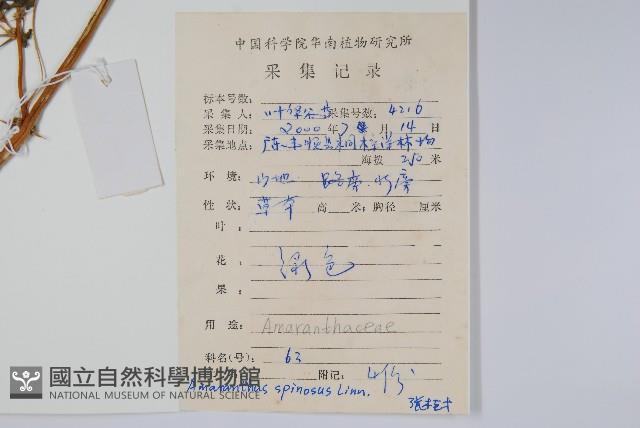 中国科学院华南植物研究所
采集记录
标本号数:
采集人: 采集号数: 4216
采集日期: 2000年7月14日
采集地点:
海拔 250 米
环境: 山地 路旁
性状: 草本 高 米; 胸径 厘米
叶:
花: 绿色
果:
用途: Amaranthaceae
科名(号): 63
附记: 4份
Amaranthus spinosus Linn.
國立自然科學博物館
NATIONAL MUSEUM OF NATURAL SCIENCE